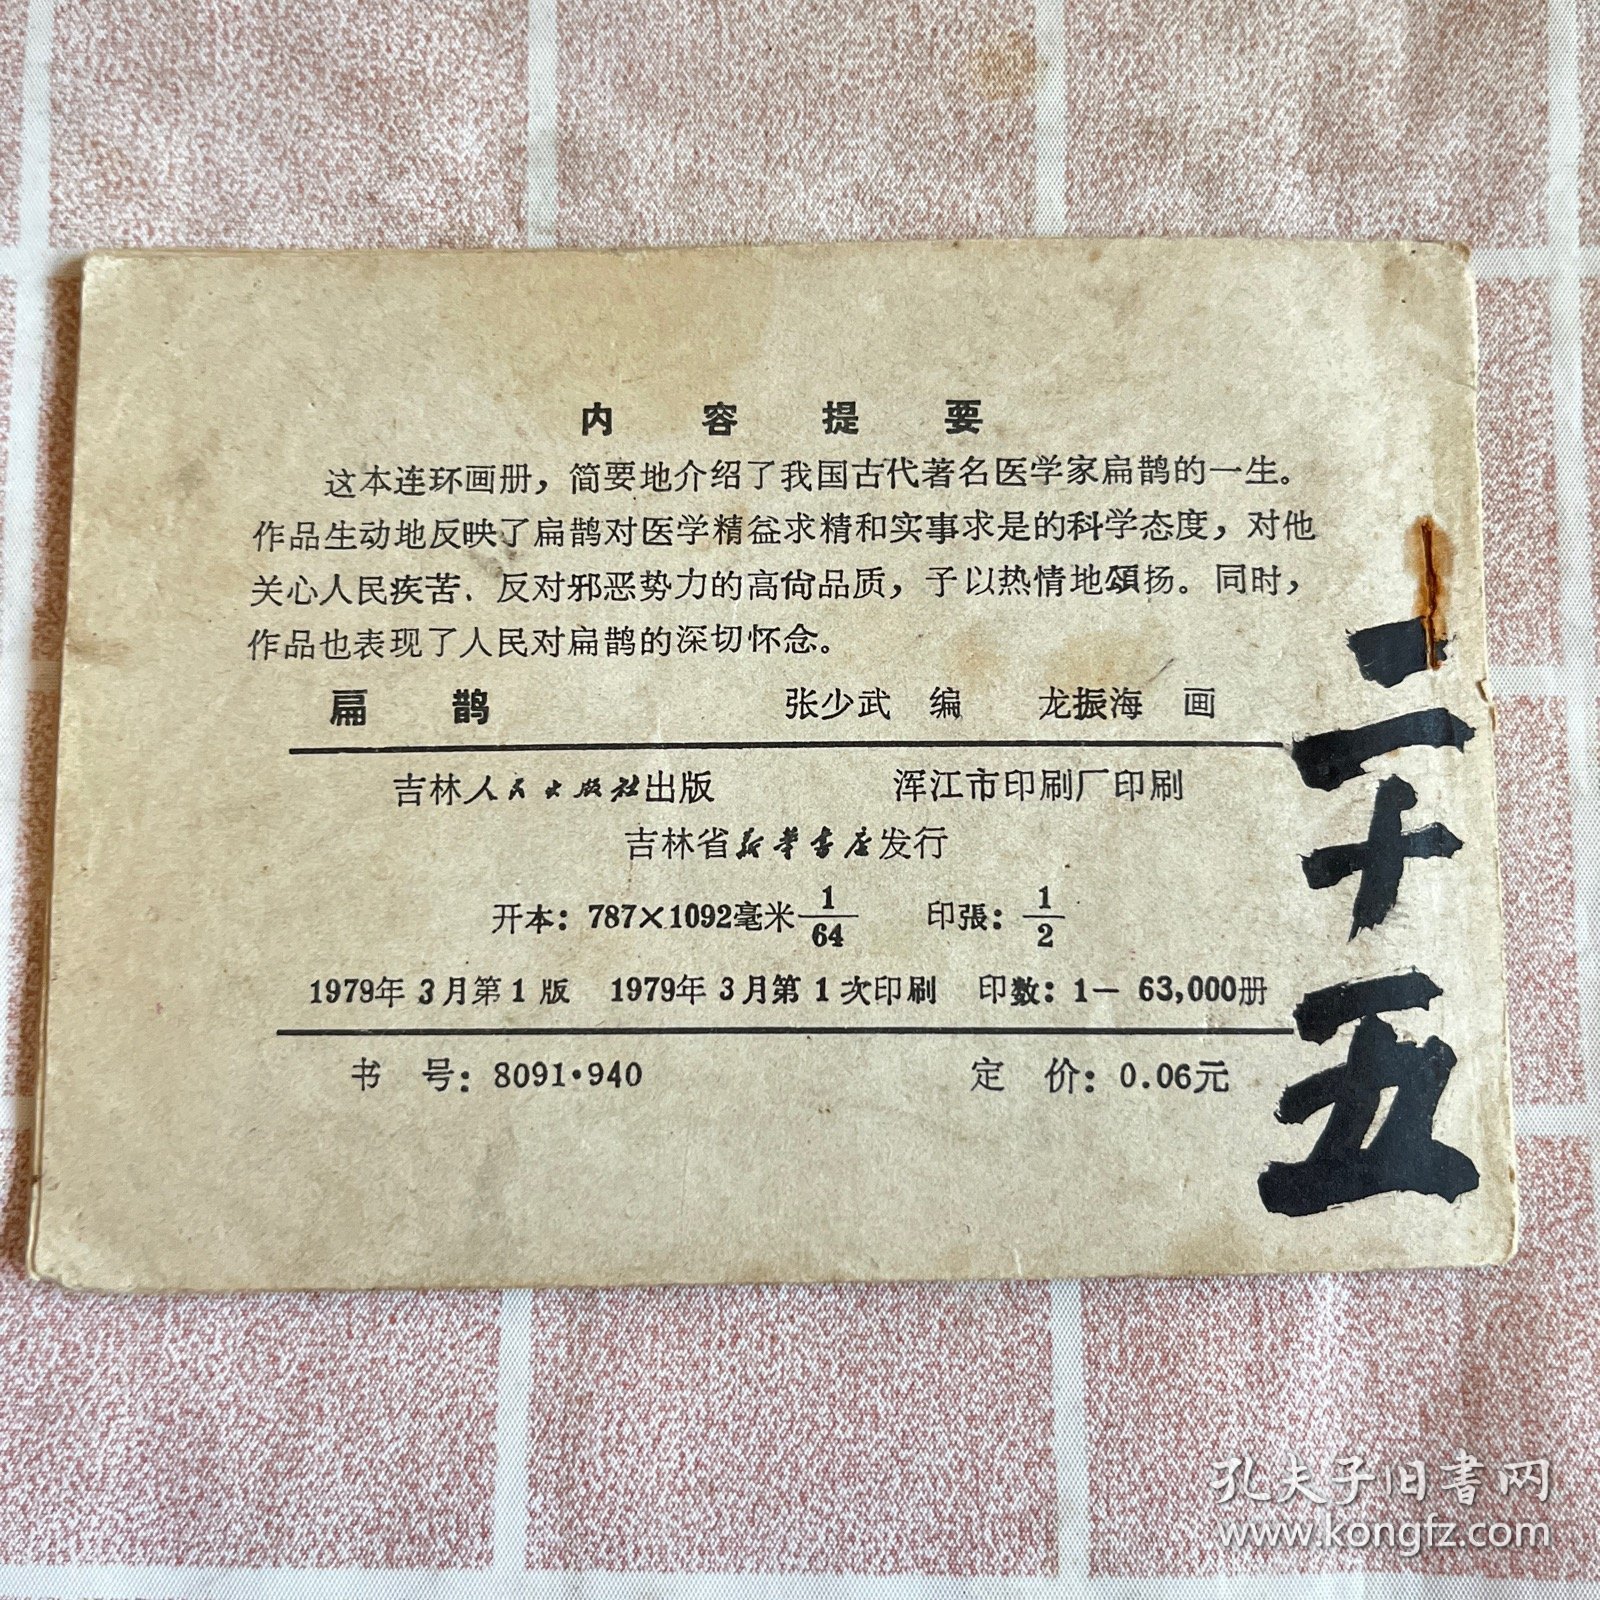 内容提要
这本连环画册，简要地介绍了我国古代著名医学家扁鹊的一生。
作品生动地反映了扁鹊对医学精益求精和实事求是的科学态度，对他
关心人民疾苦、反对邪恶势力的高尙品质，予以热情地颂扬。同时，
作品也表现了人民对扁鹊的深切怀念。
扁鹊 张少武 编 龙振海 画
吉林人民出版社出版 浑江市印刷厂印刷
吉林省新华书店发行
开本：787×1092毫米 1/64 印張：1/2
1979年3月第1版 1979年3月第1次印刷 印数：1—63,000册
书号：8091·940 定价：0.06元
二十五
孔夫子旧書网
www.kongfz.com